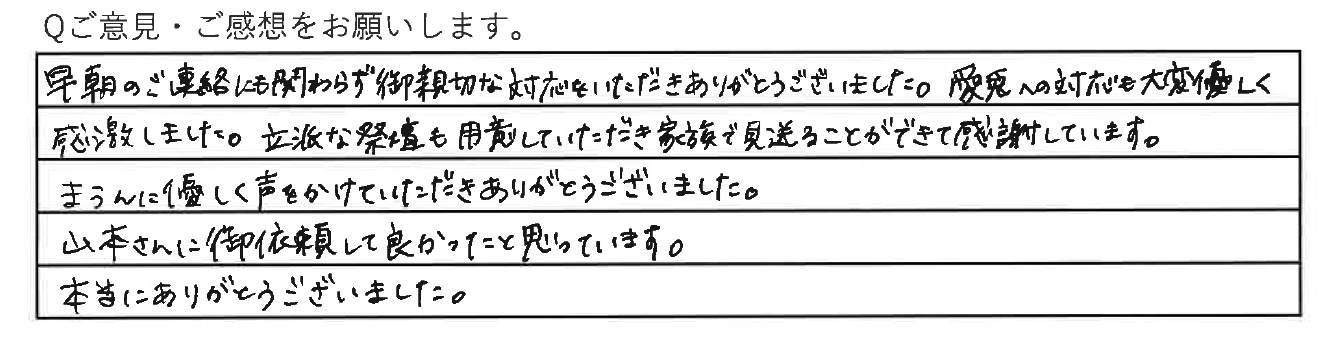 Qご意見・ご感想をお願いします。
早朝のご連絡にも関わらず御親切な対応をいただきありがとうございました。愛兎への対応も大変優しく
感激しました。立派な祭壇も用意していただき家族で見送ることができて感謝しています。
まうんに優しく声をかけていただきありがとうございました。
山本さんに御依頼して良かったと思っています。
本当にありがとうございました。